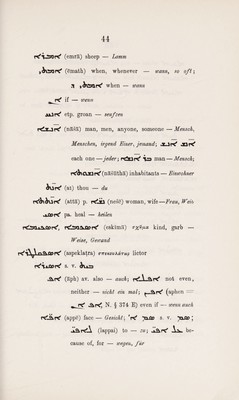 44
ܐܡܪܐ (emrā) sheep — Lamm
ܐܡܬܝ (ĕmath) when, whenever — wann, so oft;
ܐܡܬܝ ܕ when — wann
ܐܢ if — wenn
ܐܢܚ etp. groan — seufzen
ܐܢܫܐ (nāšā) man, men, anyone, someone — Mensch,
Menschen, irgend Einer, jemand; ܐܢܫ ܐܢܫ
each one — jeder; ܒܪ ܐܢܫܐ man — Mensch;
(nāšūthā) inhabitants — Einwohner
ܐܢܬ (at) thou — du
ܐܢܬܬܐ (attā) p. ܢܫܐ (neše) woman, wife — Frau, Weib
ܐܣܝ pa. heal — heilen
ܐܣܟܡܐ (eskīmā) σχῆμα kind, garb —
Weise, Gewand
(aspeklaṭra) lictor
s. v.
ܐܦ (āph) av. also — auch; ܐܦܠܐ not even,
neither — nicht ein mal; ܐܦܢ (aphen =
ܐܦ ܐܢ, N. § 374 E) even if — wenn auch
ܐܦܐ (appē) face — Gesicht; s. v.
(lappai) to — zu; be-
cause of, for — wegen, für